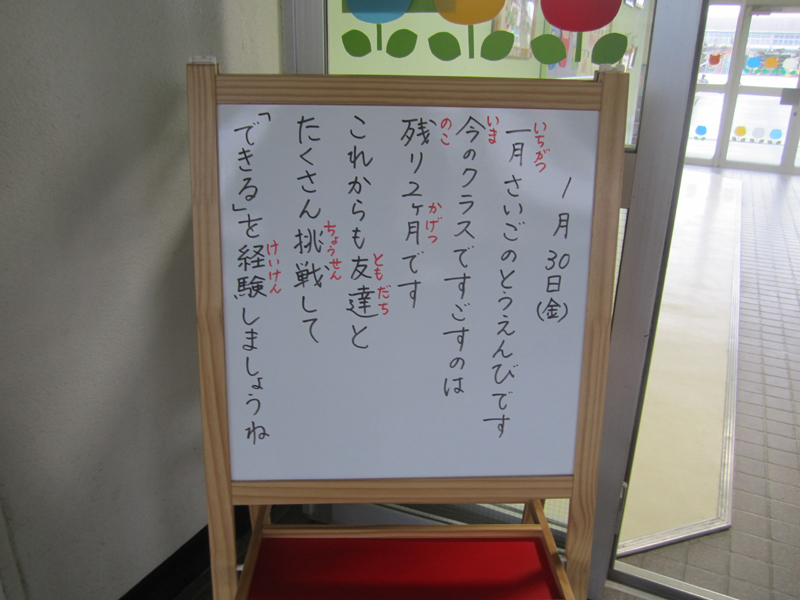 1月30日(金)
一月さいごのとうえんびです
いちがつ
今のクラスですごすのは
いま
残り2ヶ月です
のこ
かげつ
これからも友達と
ともだち
たくさん挑戦して
ちょうせん
「できる」を経験しましょうね
けいけん